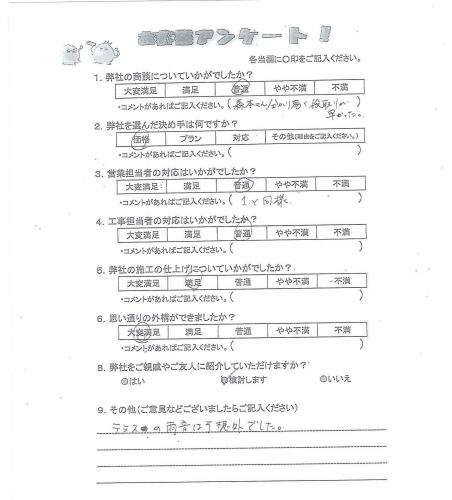 お客様アンケート！
各当欄に〇印をご記入ください。
1. 弊社の商談についていかがでしたか？
大変満足 満足 普通 やや不満 不満
・コメントがあればご記入ください。( 森本さん分かり易く段取りが
早かった。 )
2. 弊社を選んだ決め手は何ですか？
価格 プラン 対応 その他(理由をご記入ください。)
・コメントがあればご記入ください。( )
3. 営業担当者の対応はいかがでしたか？
大変満足 満足 普通 やや不満 不満
・コメントがあればご記入ください。( 1と同様 )
4. 工事担当者の対応はいかがでしたか？
大変満足 満足 普通 やや不満 不満
・コメントがあればご記入ください。( )
5. 弊社の施工の仕上げについていかがでしたか？
大変満足 満足 普通 やや不満 不満
・コメントがあればご記入ください。( )
6. 思い通りの外構ができましたか？
大変満足 満足 普通 やや不満 不満
・コメントがあればご記入ください。( )
8. 弊社をご親戚やご友人に紹介していただけますか？
◎はい ◎検討します ◎いいえ
9. その他(ご意見などございましたらご記入ください)
テラスの雨音は予想外でした。